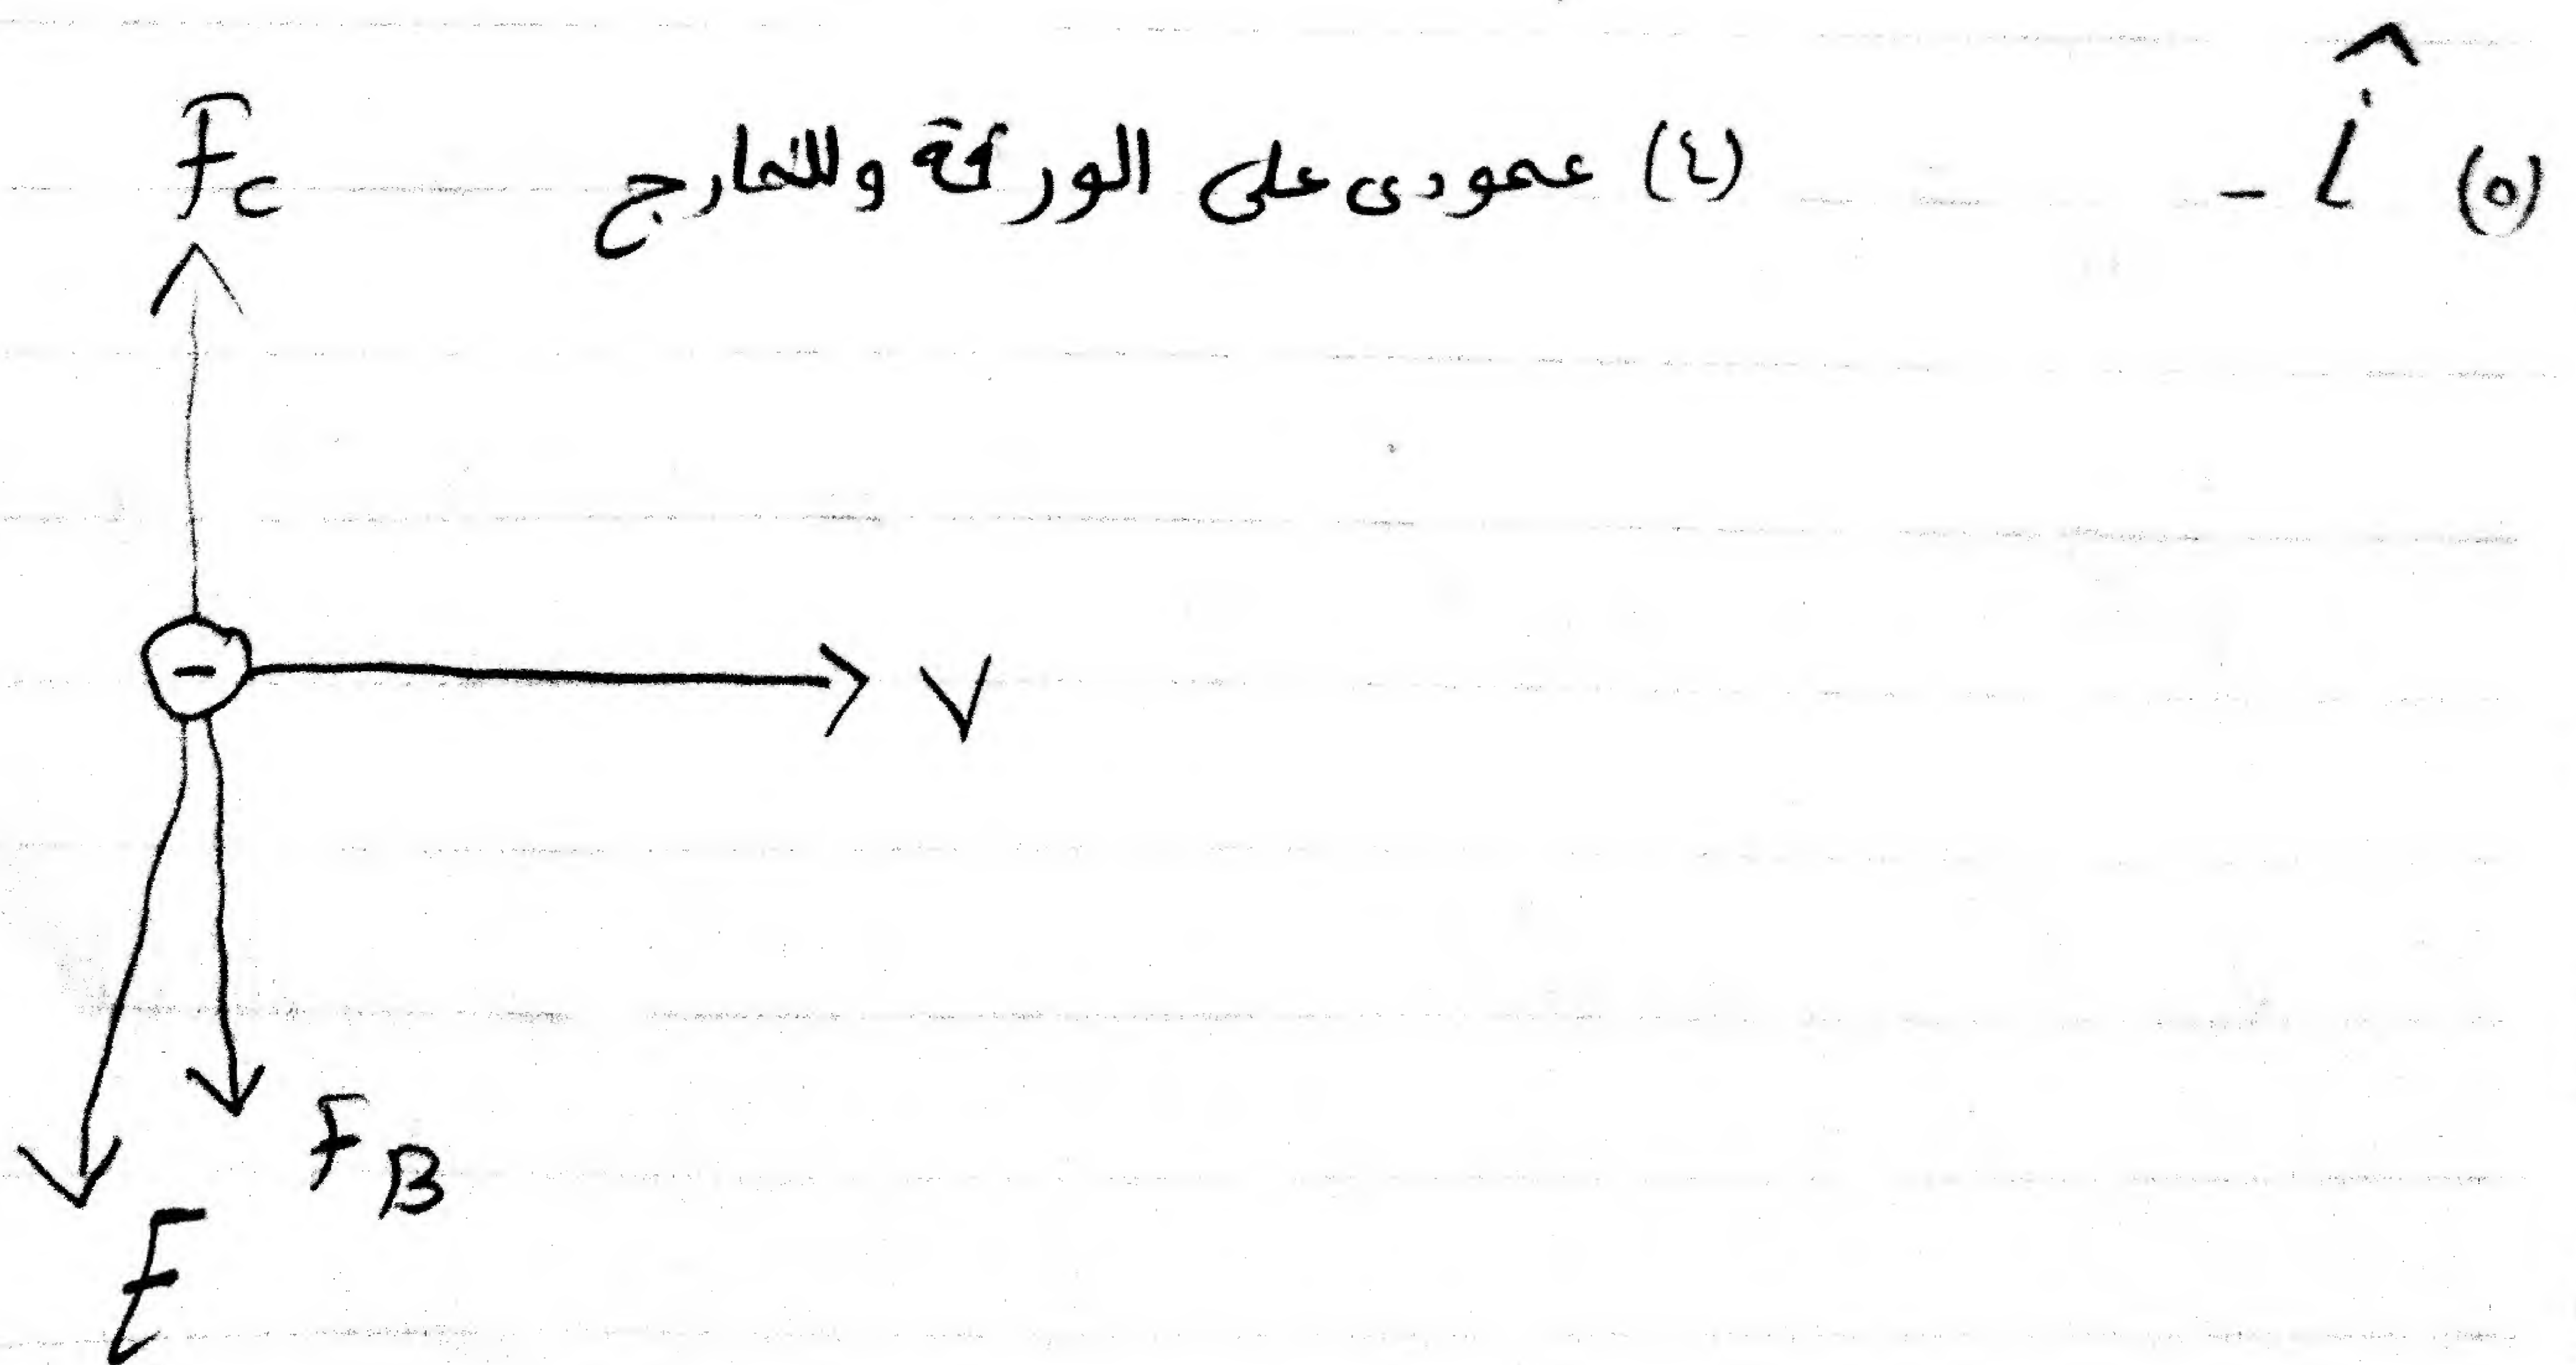 (٥) -î (٤) عمودى على الورقة وللخارج
Fc
-
V
FB
E